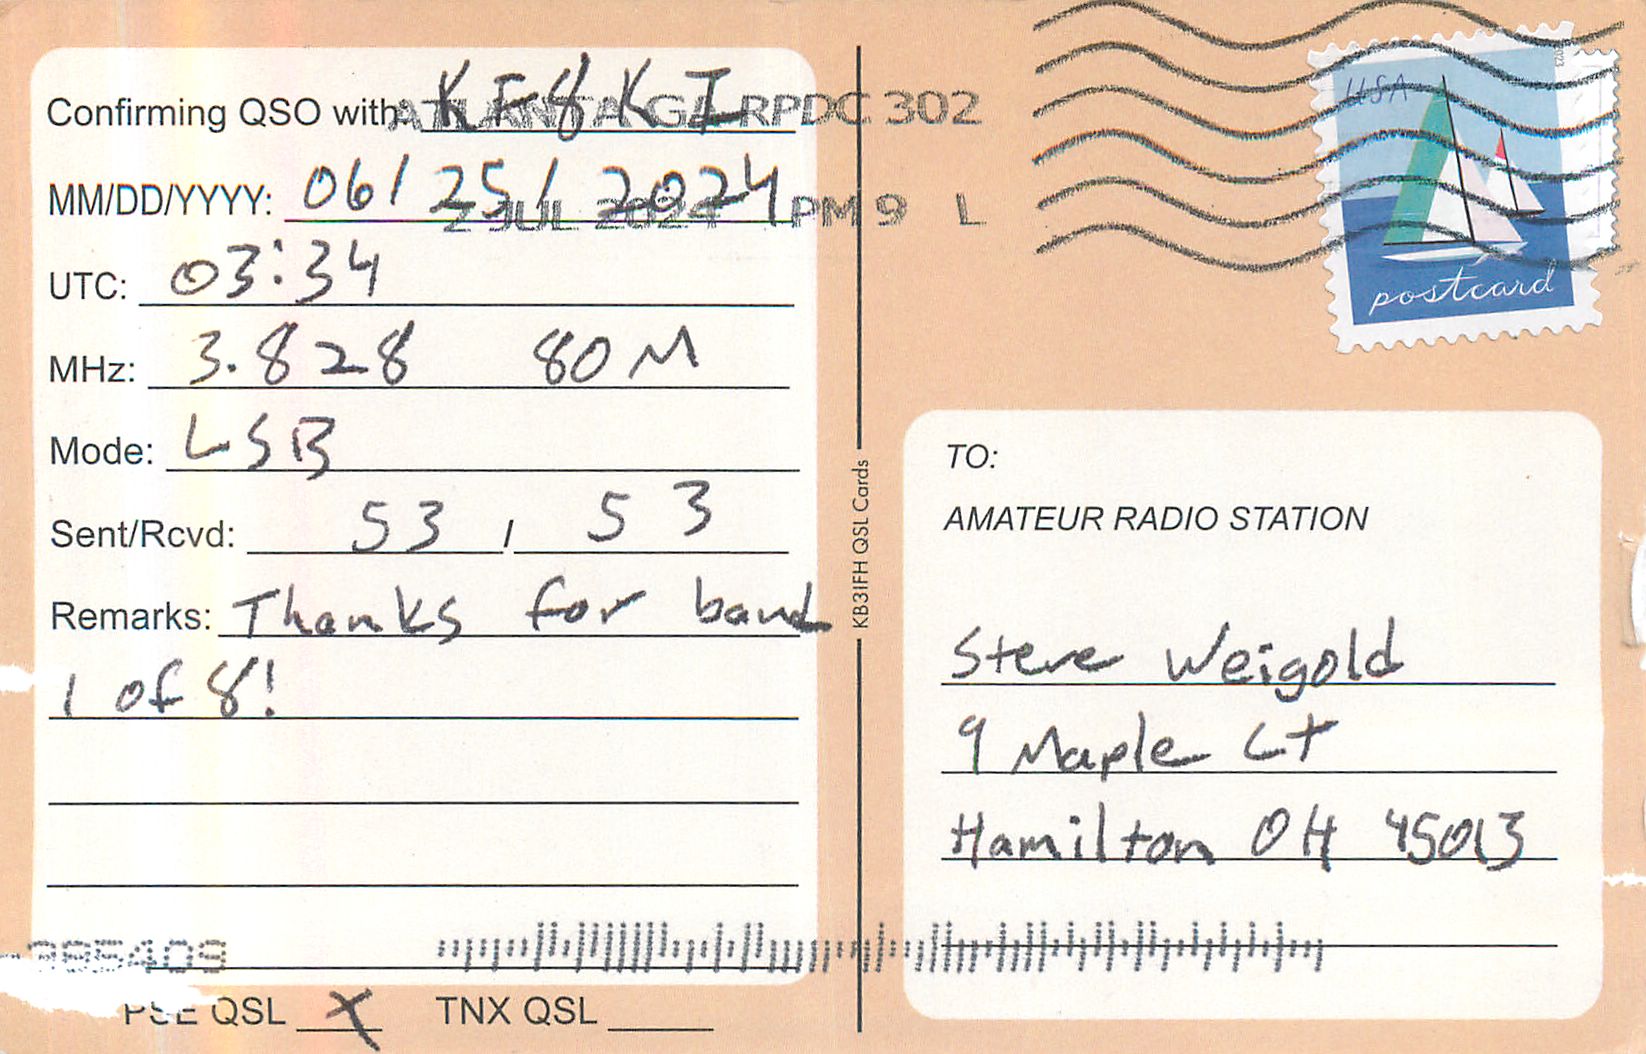 Confirming QSO with: KF8KI
MM/DD/YYYY: 06/25/2024
UTC: 03:34
MHz: 3.828 80M
Mode: LSB
Sent/Rcvd: 53 / 53
Remarks: Thanks for band
1 of 8!
PSE QSL X TNX QSL
385409
ATLANTA GA RPDC 302
2 JUL 2024 PM 9 L
KB3IFH QSL Cards
USA
postcard
TO:
AMATEUR RADIO STATION
Steve Weigold
9 Maple Ct
Hamilton OH 45013